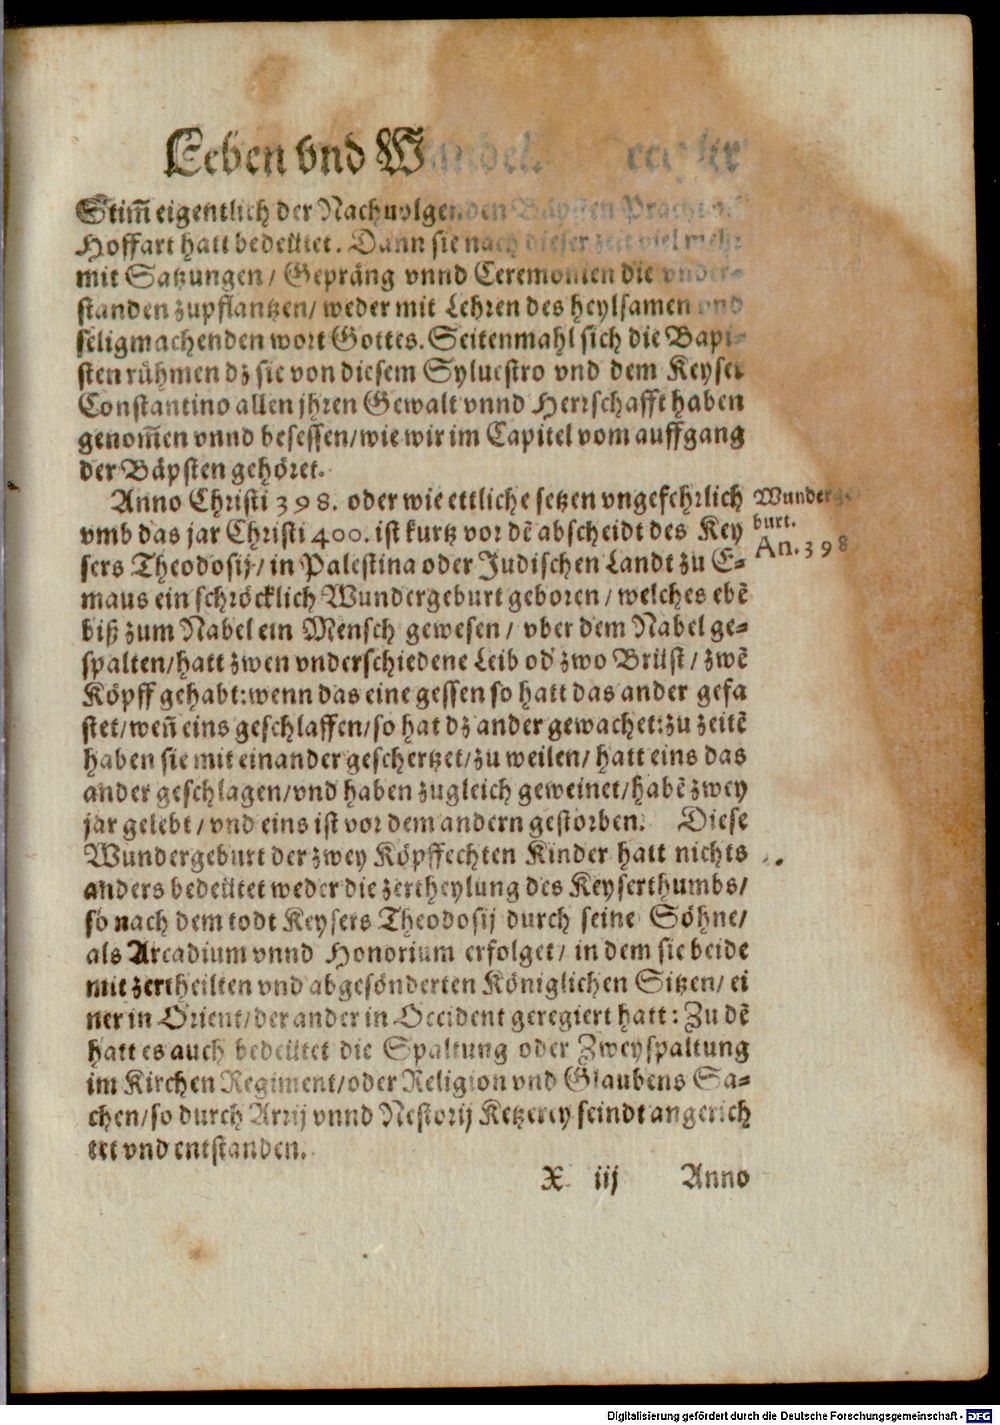 Leben vnd Wandel
Stim̃ eigentlich der Nachuolgenden Bäpsten Pracht
Hoffart hatt bedeütet. Dann sie nach dieser zeit viel mehr
mit Satzungen/ Gepräng vnnd Ceremonien die vnder-
standen zupflantzen/ weder mit Lehren des heylsamen vnd
seligmachenden wort Gottes. Seitenmahl sich die Bapi-
sten rühmen dz sie von diesem Syluestro vnd dem Keyser
Constantino allen jhren Gewalt vnnd Herrschafft haben
genom̃en vnnd besessen/ wie wir im Capitel vom auffgang
der Bäpsten gehöret.
Anno Christi 398. oder wie ettliche setzen vngefehrlich
vmb das jar Christi 400. ist kurtz vor dẽ abscheidt des Key
sers Theodosij/ in Palestina oder Judischen Landt zu E-
maus ein schröcklich Wundergeburt geboren/ welches ebẽ
biß zum Nabel ein Mensch gewesen/ vber dem Nabel ge-
spalten/ hatt zwen vnderschiedene Leib od' zwo Brüst/ zwẽ
Köpff gehabt: wenn das eine gessen so hatt das ander gefa
stet/ weñ eins geschlaffen/ so hat dz ander gewachet: zu zeitẽ
haben sie mit einander geschertzet/ zu weilen/ hatt eins das
ander geschlagen/ vnd haben zugleich geweinet/ habẽ zwey
jar gelebt/ vnd eins ist vor dem andern gestorben. Diese
Wundergeburt der zwey Köpffechten Kinder hatt nichts
anders bedeütet weder die zertheylung des Keyserthumbs/
so nach dem todt Keysers Theodosij durch seine Söhne/
als Arcadium vnnd Honorium erfolget/ in dem sie beide
mit zertheilten vnd abgesönderten Königlichen Sitzen/ ei
ner in Orient/ der ander in Occident geregiert hatt: Zu dẽ
hatt es auch bedeütet die Spaltung oder Zweyspaltung
im Kirchen Regiment/ oder Religion vnd Glaubens Sa-
chen/ so durch Arrij vnnd Nestorij Ketzerey seindt angerich
tet vnd entstanden.
X iij Anno
Wunderge
burt.
An. 398
Digitalisierung gefördert durch die Deutsche Forschungsgemeinschaft - DFG